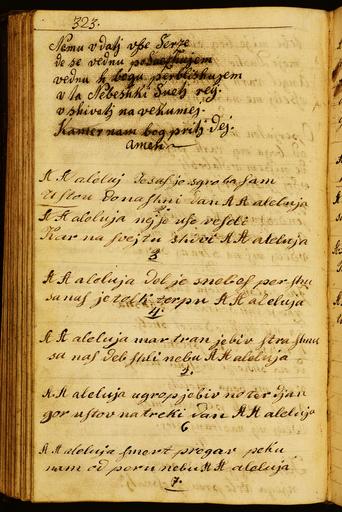 323.
Nemu vdatj vſse Serze
de se vednu poſvezhujem
vednu k bogu perbleshujem
vta Nebeshki Svetj rej.
vshivatj na vekumej.
Kamer nam bog pritj dej.
amen
A A aleluj Jesus je sgroba ſam
Uſtou donaſhni dan A A aleluja
A A aleluja nej ſe vſe veſeli
Kar na ſvejtu shivi A A aleluja
3
A A aleluja dol je snebes per shu
sa nas je terpu A A aleluja
4.
A A aleluja mar tran je biv stra shnu
sa nas deb shli nebu A A aleluja
5.
A A aleluja ugrop je biv no ter djan
gor uſtov na treki dan A A aleluja
6
A A aleluja ſmert pregar peku
nam od peru nebu A A aleluja
7.